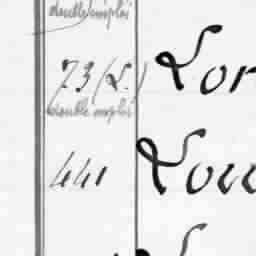 double emploi
73 (L.) Lor
double emploi
441 Lou